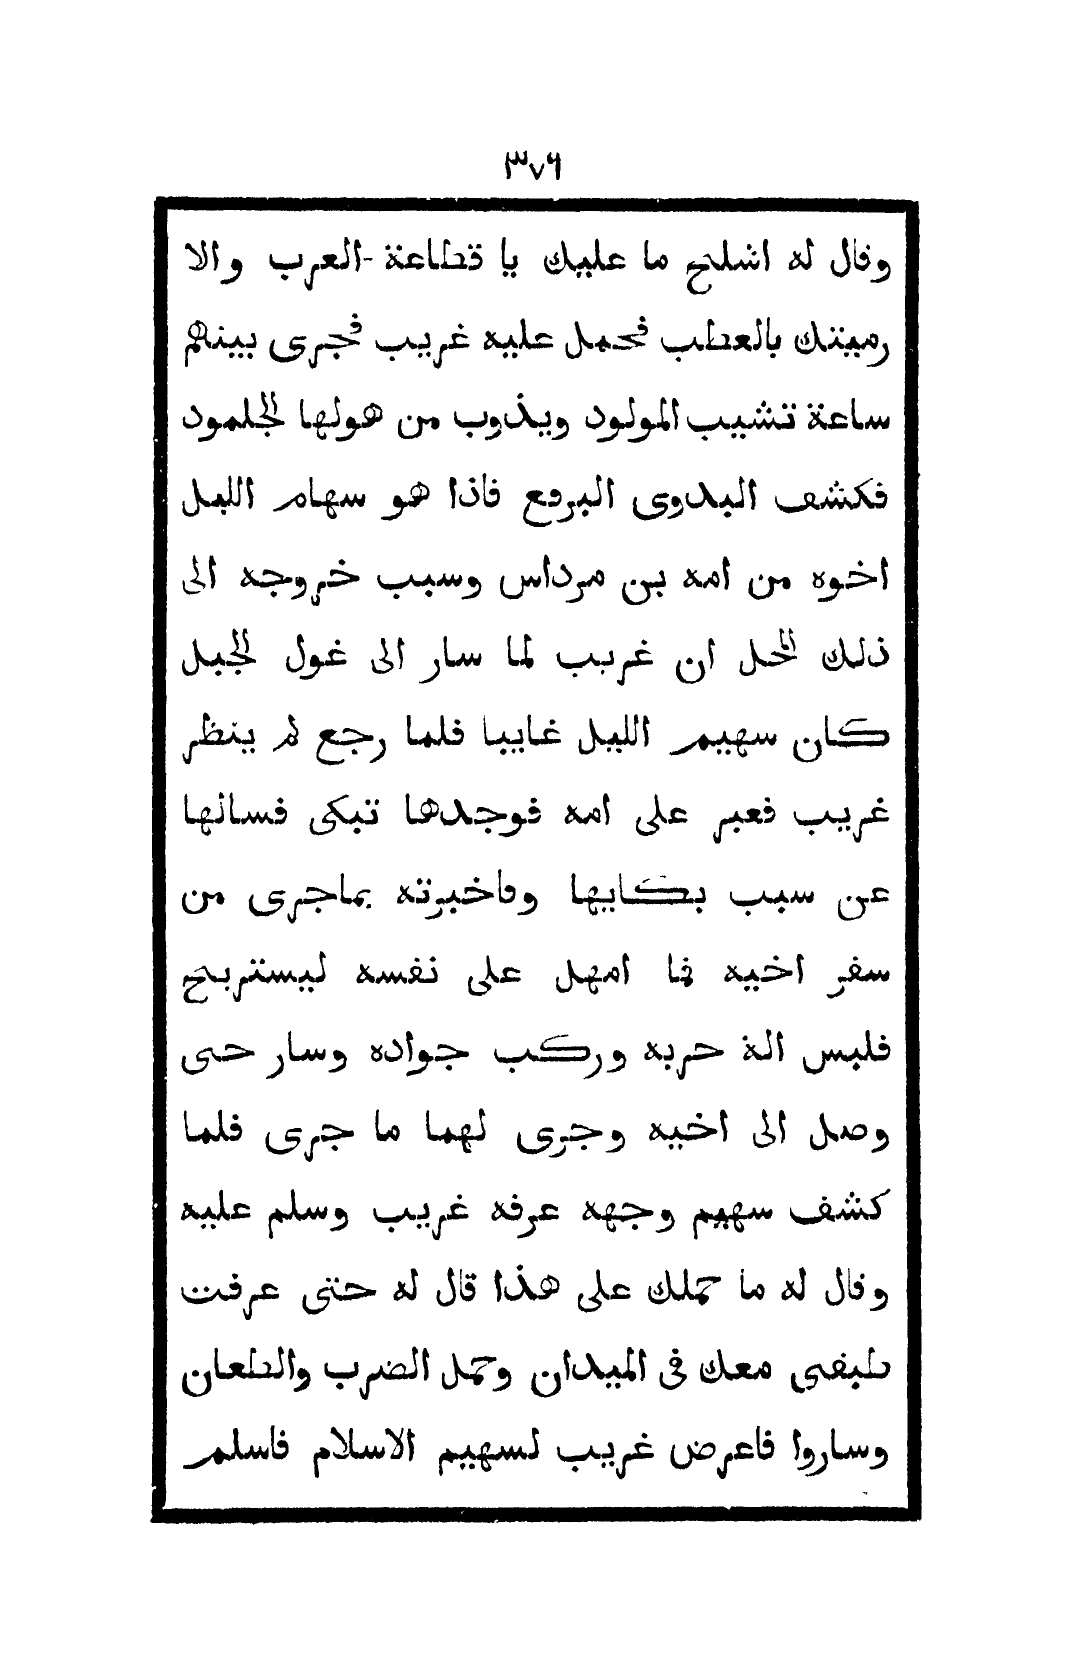 ٣٧٦
وقال له اشلح ما عليك يا قطاعة العرب والا
رميتك بالعطب فحمل عليه غريب فجرى بينهم
ساعة تشيب المولود ويذوب من هولها الجلمود
فكشف البدوى البرقع فاذا هو سهام الليل
اخوه من امه بن مرداس وسبب خروجه الى
ذلك المحل ان غريب لما سار الى غول الجبل
كان سهيم الليل غايبا فلما رجع لم ينظر
غريب فعبر على امه فوجدها تبكى فسالها
عن سبب بكايها وفاخبرته بماجرى من
سفر اخيه فما امهل على نفسه ليستريح
فلبس الة حربه وركب جواده وسار حتى
وصل الى اخيه وجرى لهما ما جرى فلما
كشف سهيم وجهه عرفه غريب وسلم عليه
وقال له ما حملك على هذا قال له حتى عرفت
طبقى معك فى الميدان وحمل الضرب والطعان
وساروا فاعرض غريب لسهيم الاسلام فاسلم